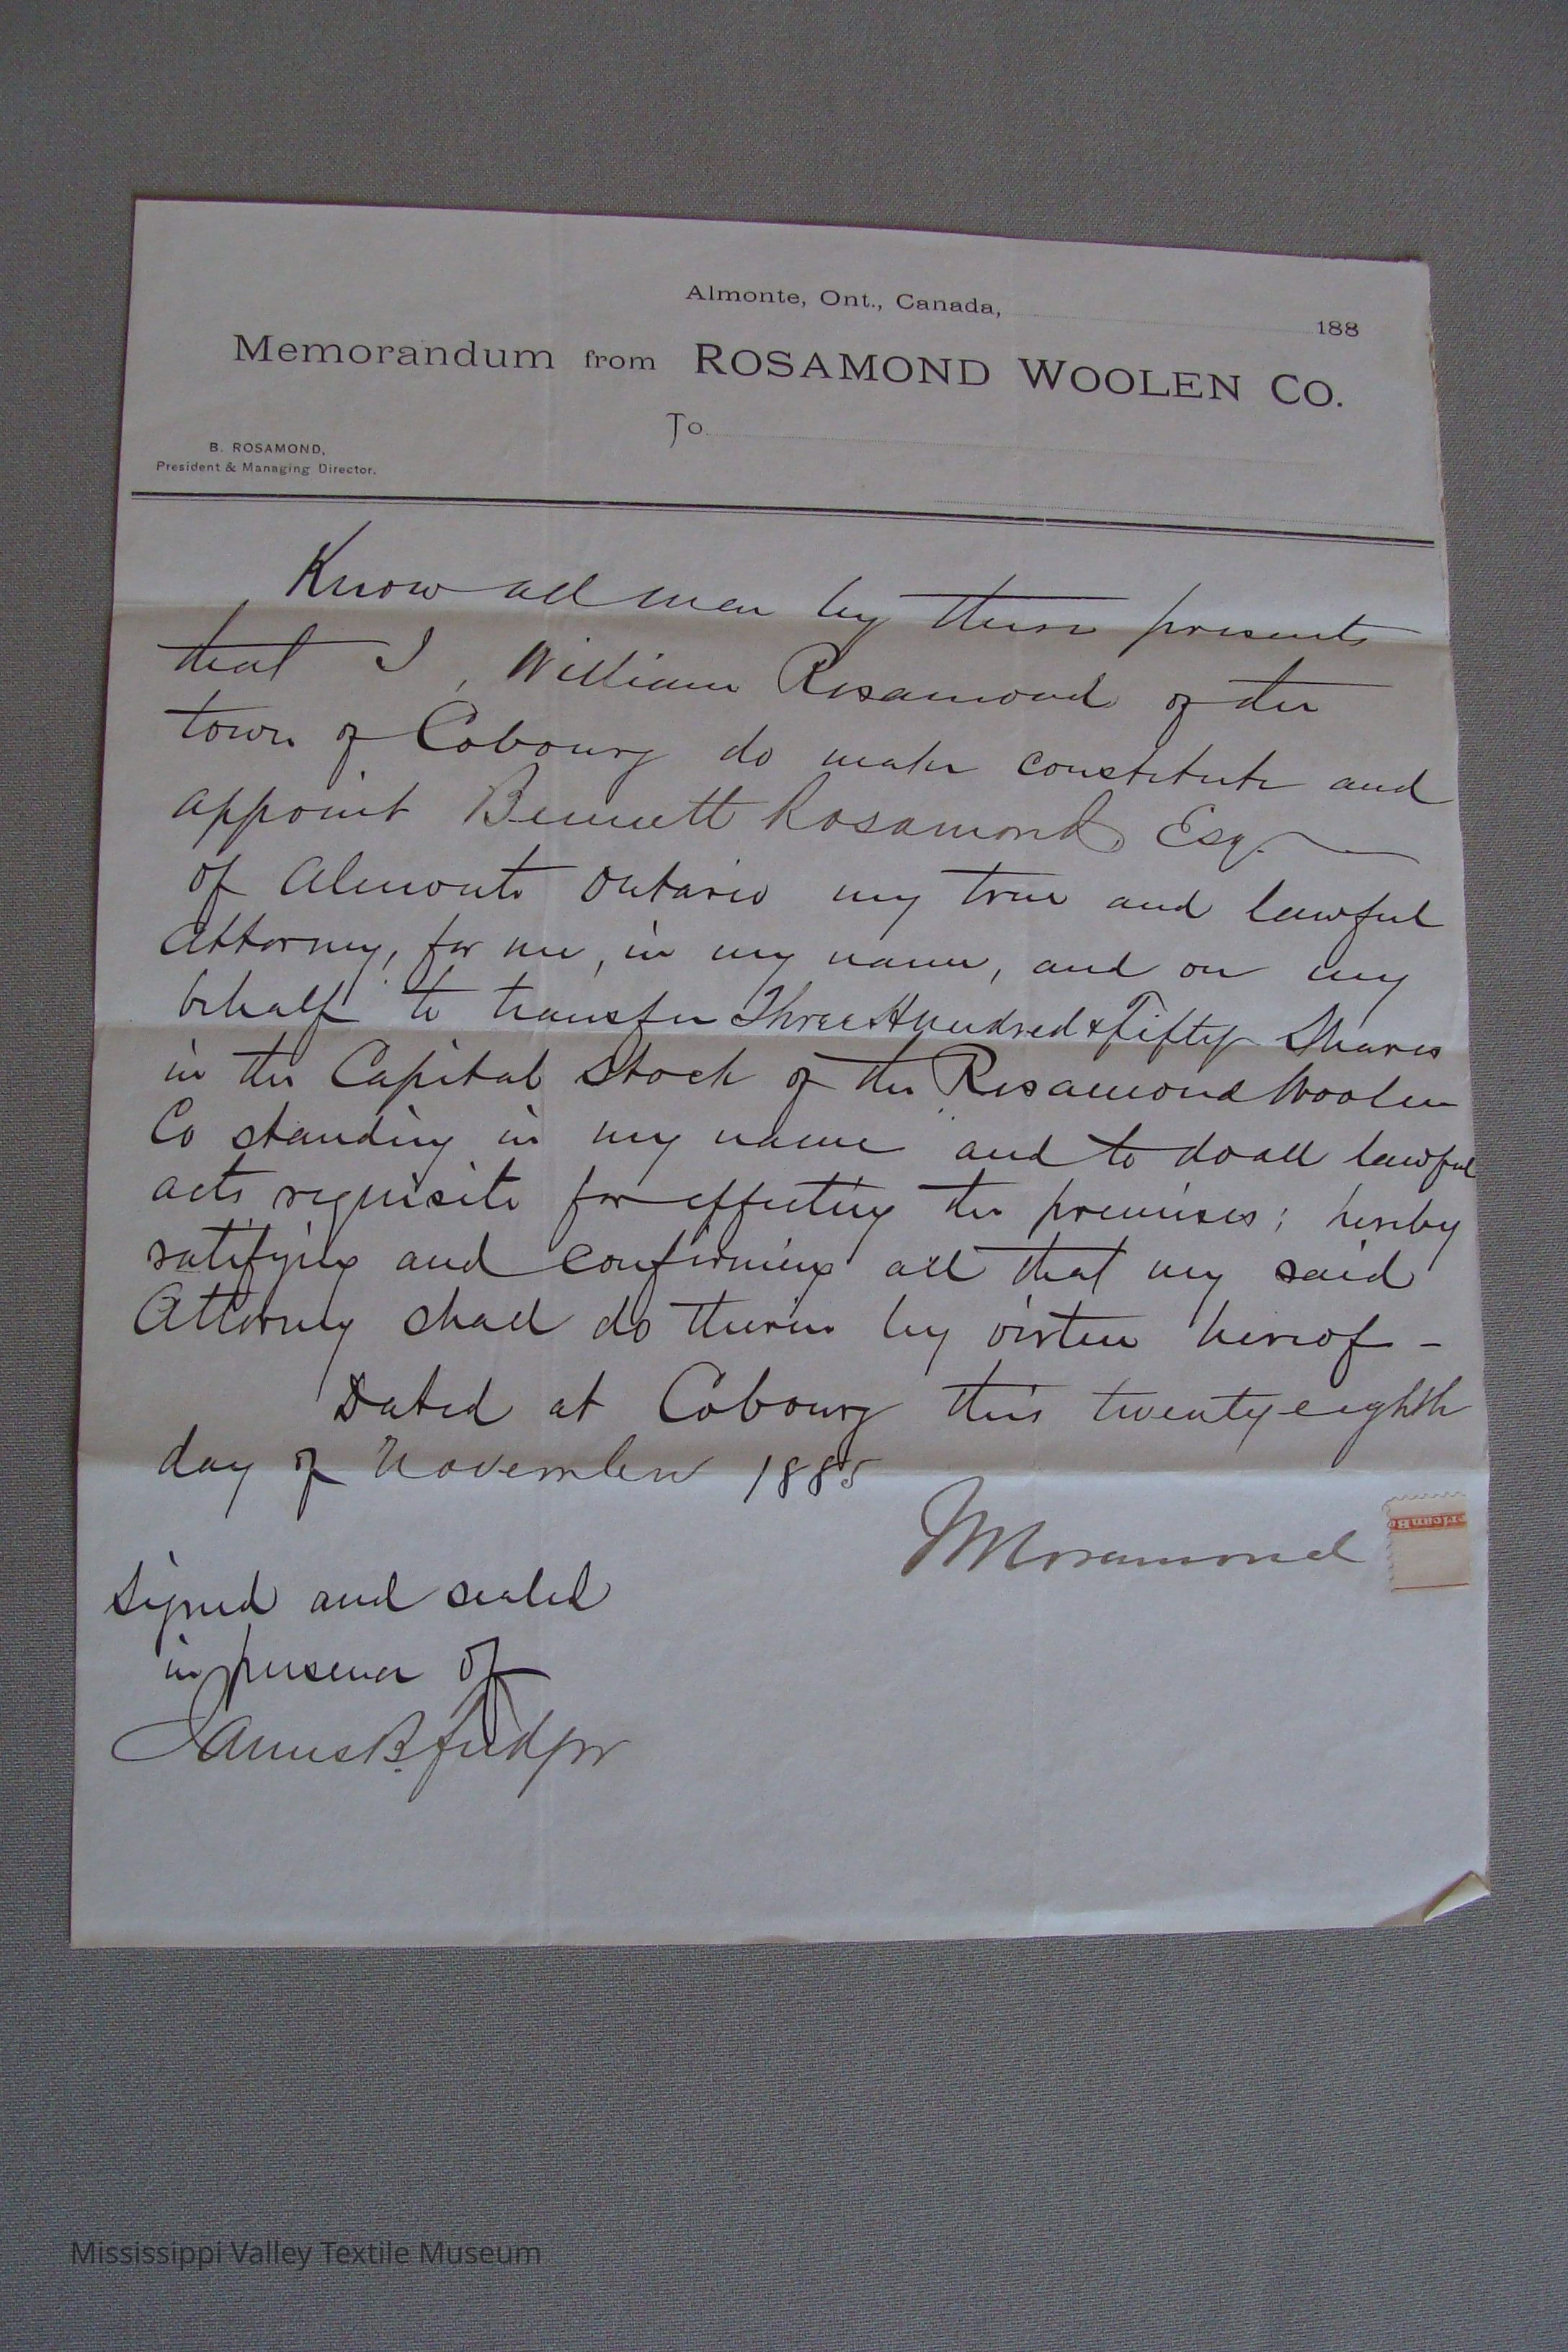 Almonte, Ont., Canada, 188
Memorandum from ROSAMOND WOOLEN CO.
To
B. ROSAMOND,
President & Managing Director.
Know all men by these presents
that I, William Rosamond of the
town of Cobourg do make constitute and
appoint Bennett Rosamond Esq.
of Almonte Ontario my true and lawful
Attorney, for me, in my name, and on my
behalf to transfer Three Hundred & Fifty Shares
in the Capital Stock of the Rosamond Woolen
Co standing in my name and to do all lawful
acts requisite for effecting the premises; hereby
ratifying and confirming all that my said
Attorney shall do therein by virtue hereof -
Dated at Cobourg this twenty eighth
day of November 1885
W Rosamond
erican B
Signed and sealed
in presence of
James B.
Mississippi Valley Textile Museum